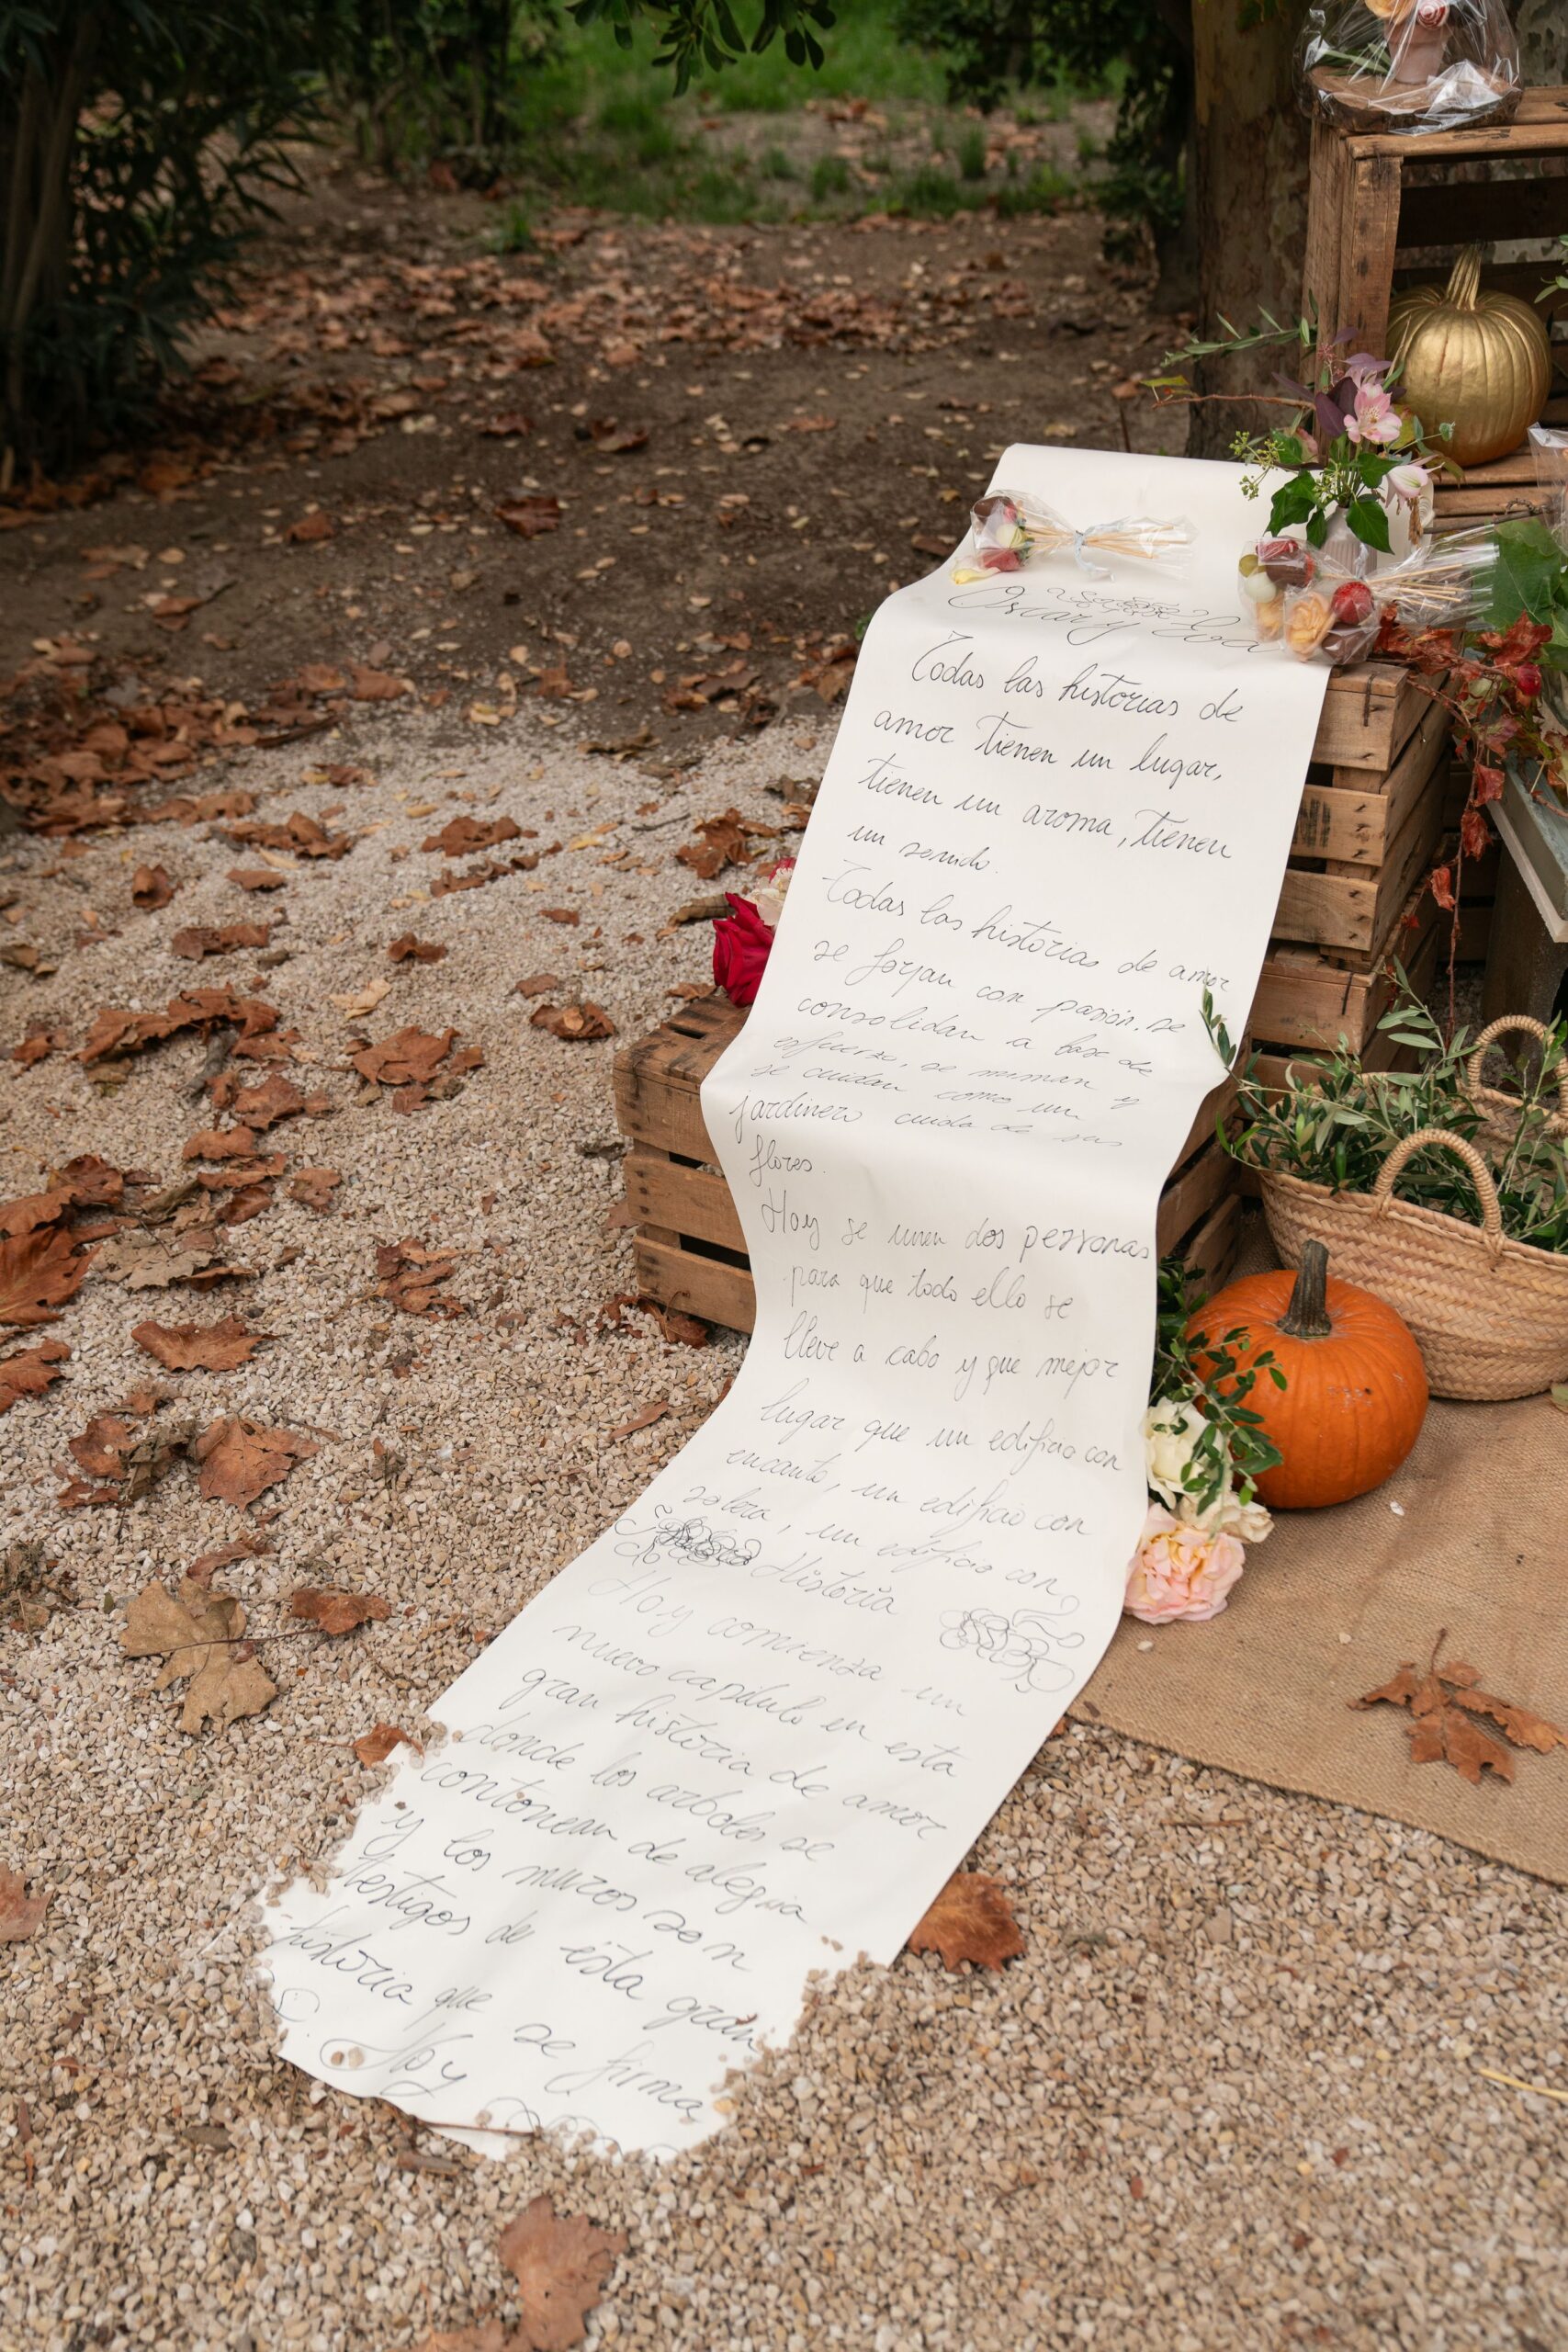 Oscar y Eva
Todas las historias de
amor tienen un lugar,
tienen un aroma, tienen
un
Todas las historias de amor
se forjan con pasión, se
consolidan a base de
esfuerzo, se miman y
se cuidan como un
jardinero cuida de sus
flores.
Hoy se unen dos personas
para que todo ello se
lleve a cabo y que mejor
lugar que un edificio con
encanto, un edificio con
solera, un edificio con
Historia
Hoy comienza un
nuevo capitulo en esta
gran historia de amor
donde los arboles se
contonean de alegria
y los muros son
testigos de esta gran
historia que se firma
Hoy